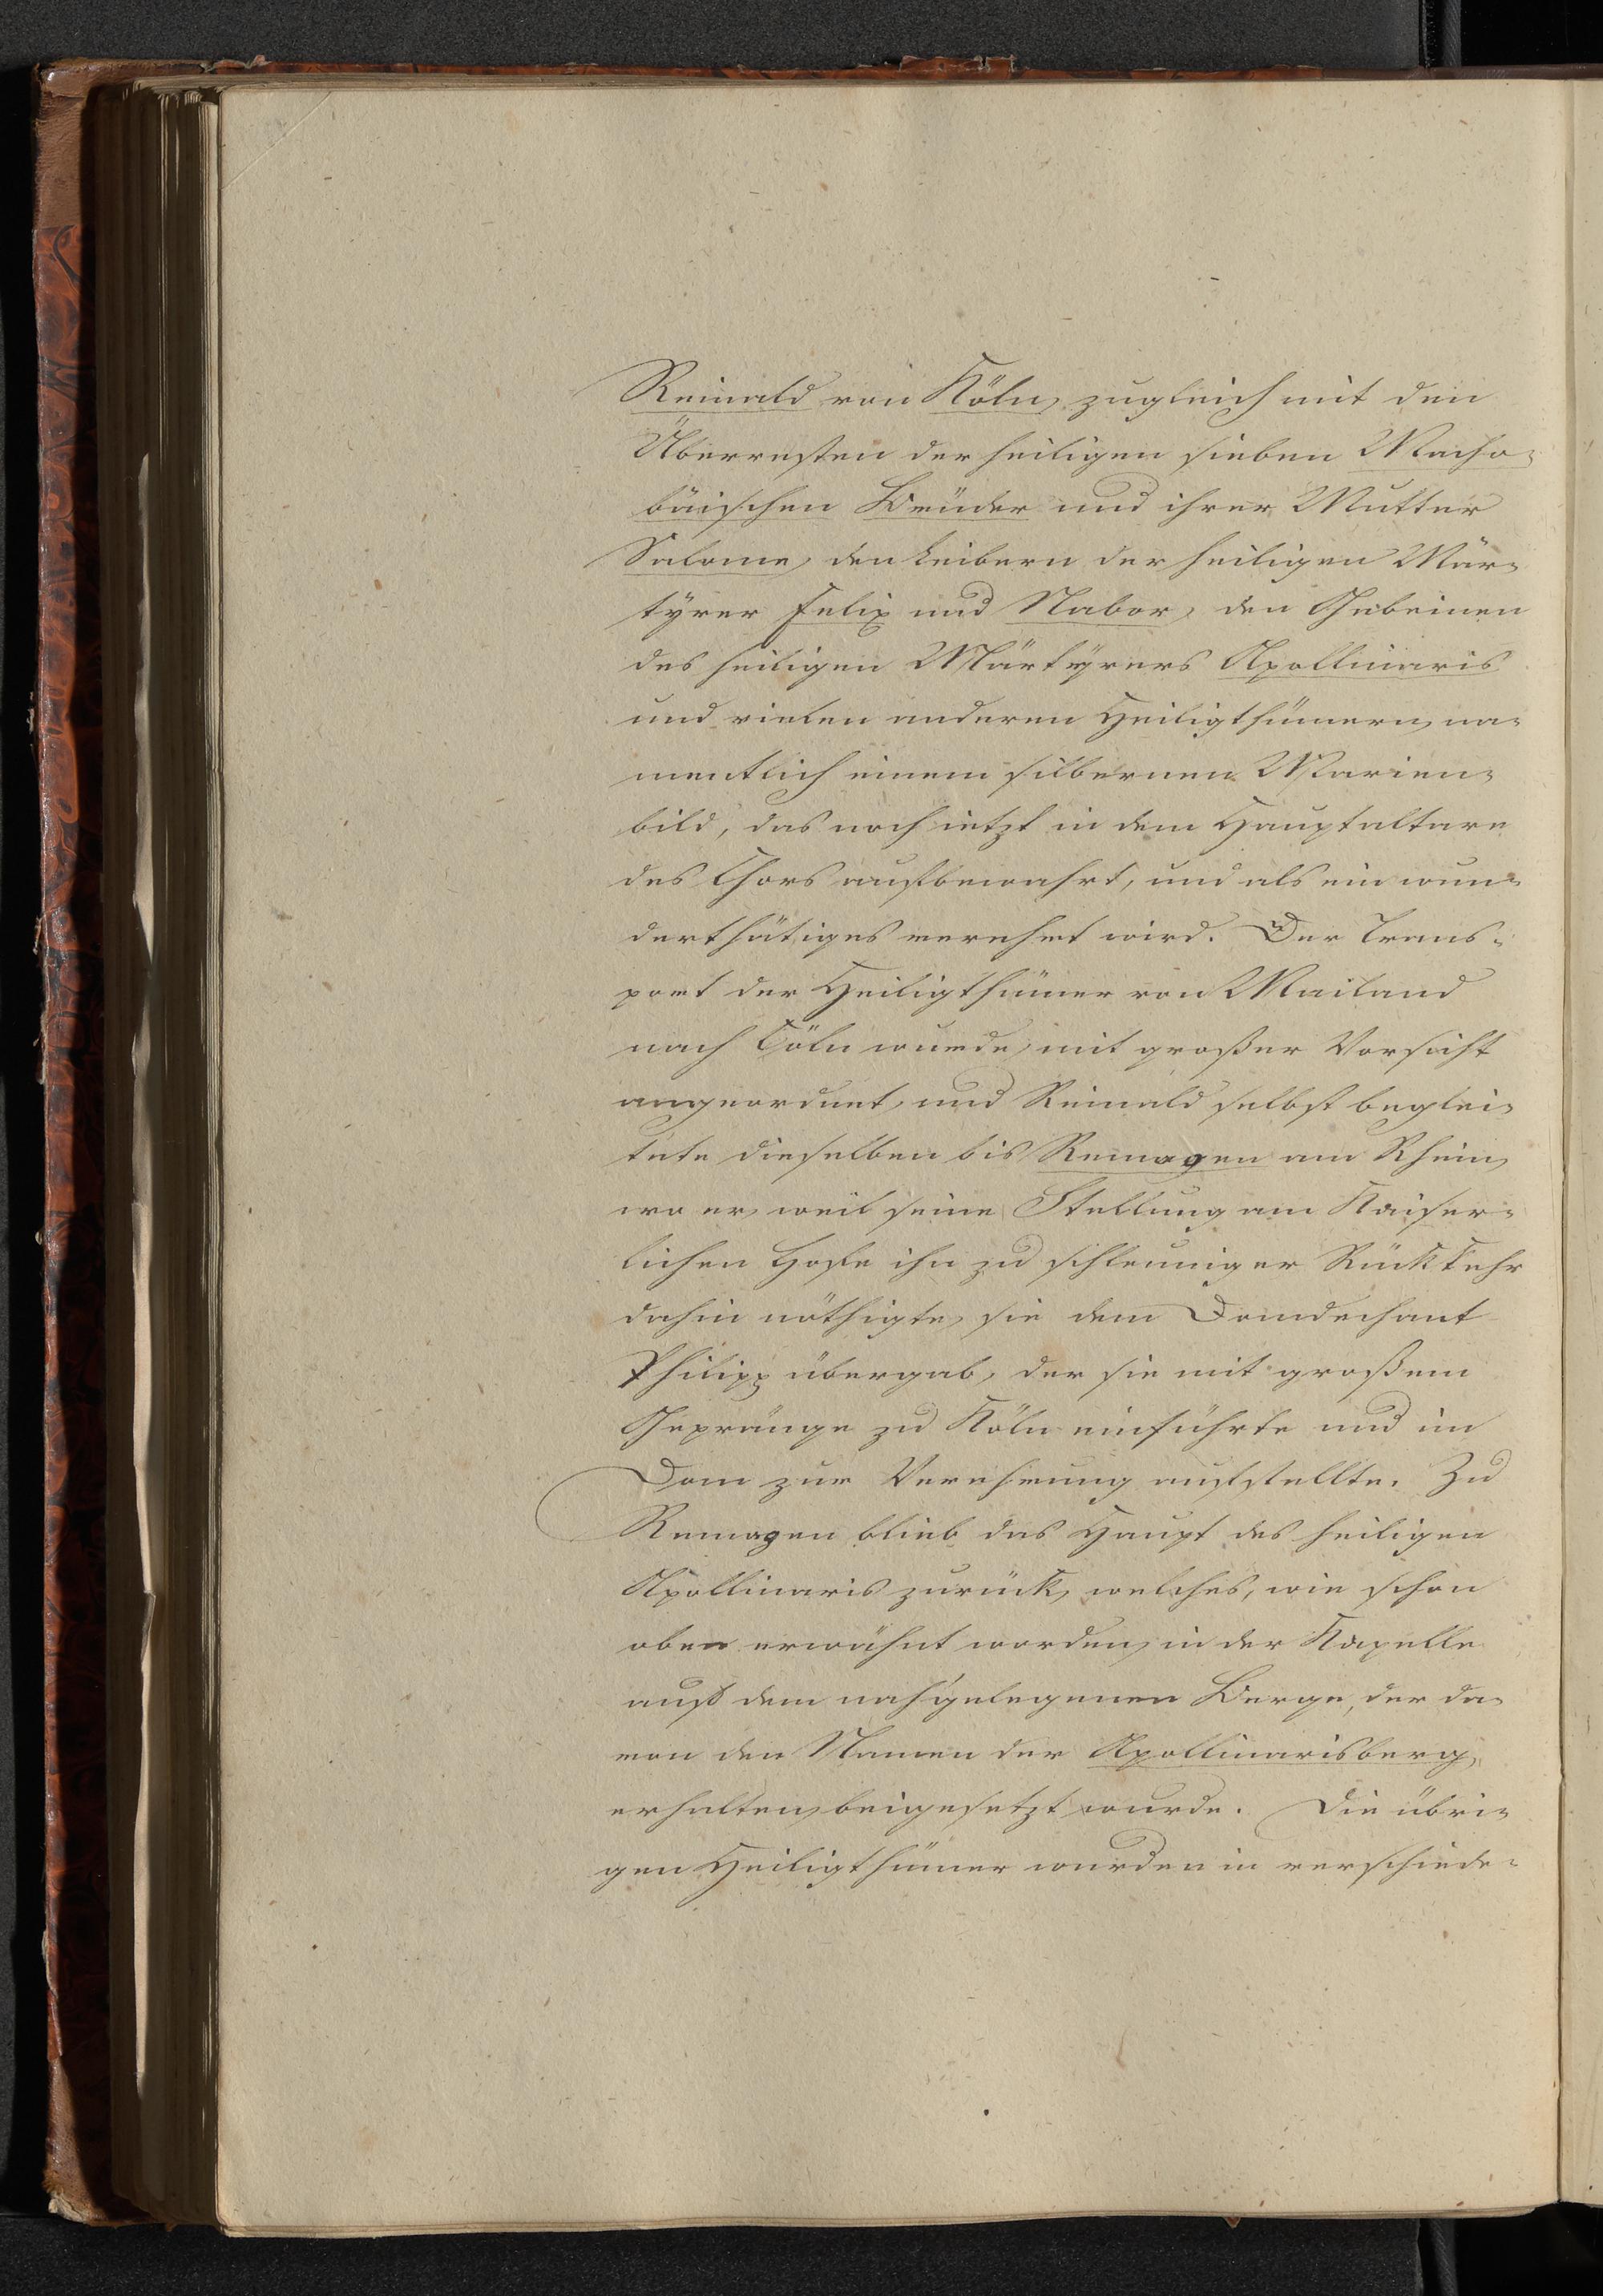 Reinald von Köln, zugleich mit den
Überresten der heiligen sieben Macha-
bäischen Brüder und ihrer Mutter
Salome, den Leibern der heiligen Mär-
tyrer Felix und Nabor, den Gebeinen
des heiligen Märtyrers Apollinaris
und vielen anderen Heiligthümern, na-
mentlich einem silbernen Marien-
bild, das noch jetzt in dem Hauptaltare
des Chors aufbewahrt, und als ein wun-
derthätiges verehrt wird. Der Trans-
port der Heiligthümer von Mailand
nach Cöln wurde, mit großer Vorsicht
angeordnet, und Reinald selbst beglei-
tete dieselben bis Remagen am Rhein,
wo er, weil seine Stellung am Kaiser-
lichen Hofe ihn zu schleuniger Rückkehr
dahin nöthigte, sie dem Domdechant
Philipp übergab, der sie mit großem
Gepränge zu Köln einführte und im
Dom zur Verehrung aufstellte. Zu
Remagen blieb das Haupt des heiligen
Apollinaris zurück, welches, wie schon
oben erwähnt worden, in der Kapelle
auf dem nah'gelegenen Berge, der da-
von den Namen der Apollinarisberg,
erhalten, beigesetzt wurde. Die übri-
gen Heiligthümer wurden in verschiede-